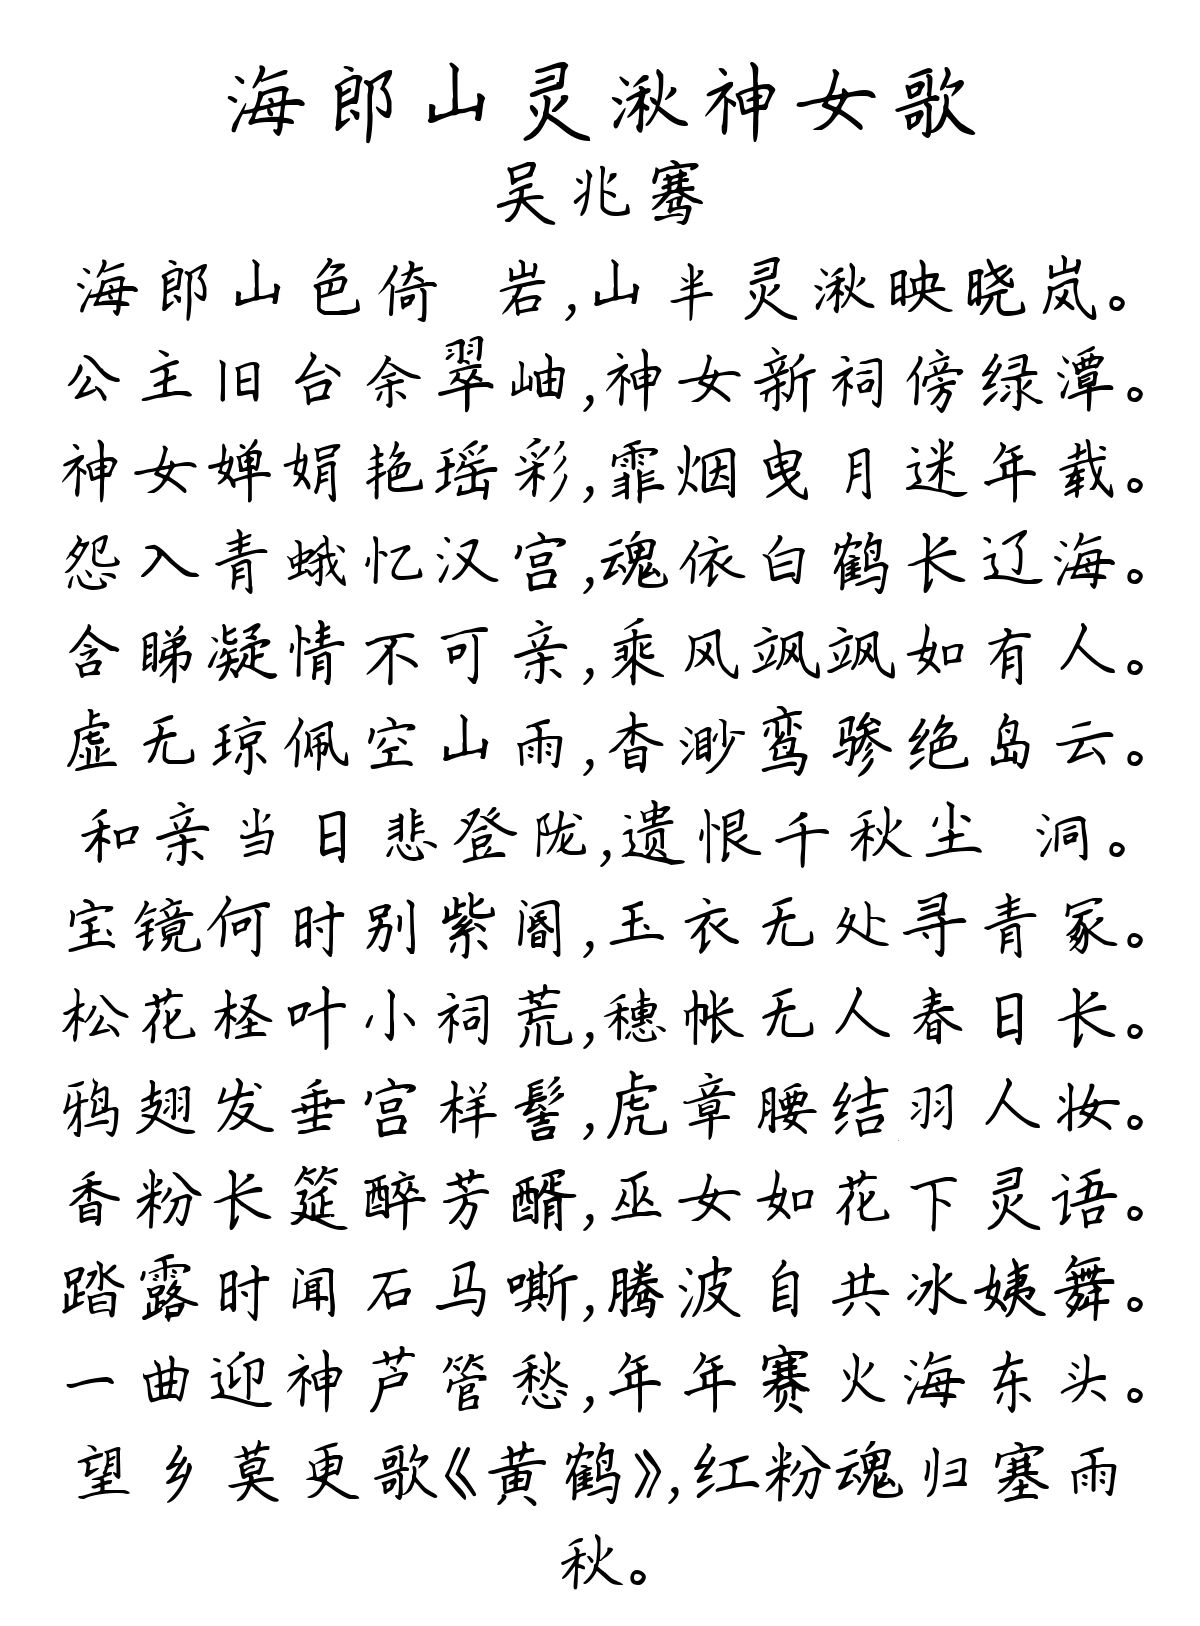 海郎山灵湫神女歌
吴兆骞
海郎山色倚 岩,山半灵湫映晓岚。
公主旧台余翠岫,神女新祠傍绿潭。
神女婵娟艳瑶彩,霏烟曳月迷年载。
怨入青蛾忆汉宫,魂依白鹤长辽海。
含睇凝情不可亲,乘风飒飒如有人。
虚无琼佩空山雨,杳渺鸾骖绝岛云。
和亲当日悲登陇,遗恨千秋尘 洞。
宝镜何时别紫阍,玉衣无处寻青冢。
松花柽叶小祠荒,穗帐无人春日长。
鸦翅发垂宫样髻,虎章腰结羽人妆。
香粉长筵醉芳醑,巫女如花下灵语。
踏露时闻石马嘶,腾波自共冰姨舞。
一曲迎神芦管愁,年年赛火海东头。
望乡莫更歌《黄鹤》,红粉魂归塞雨
秋。